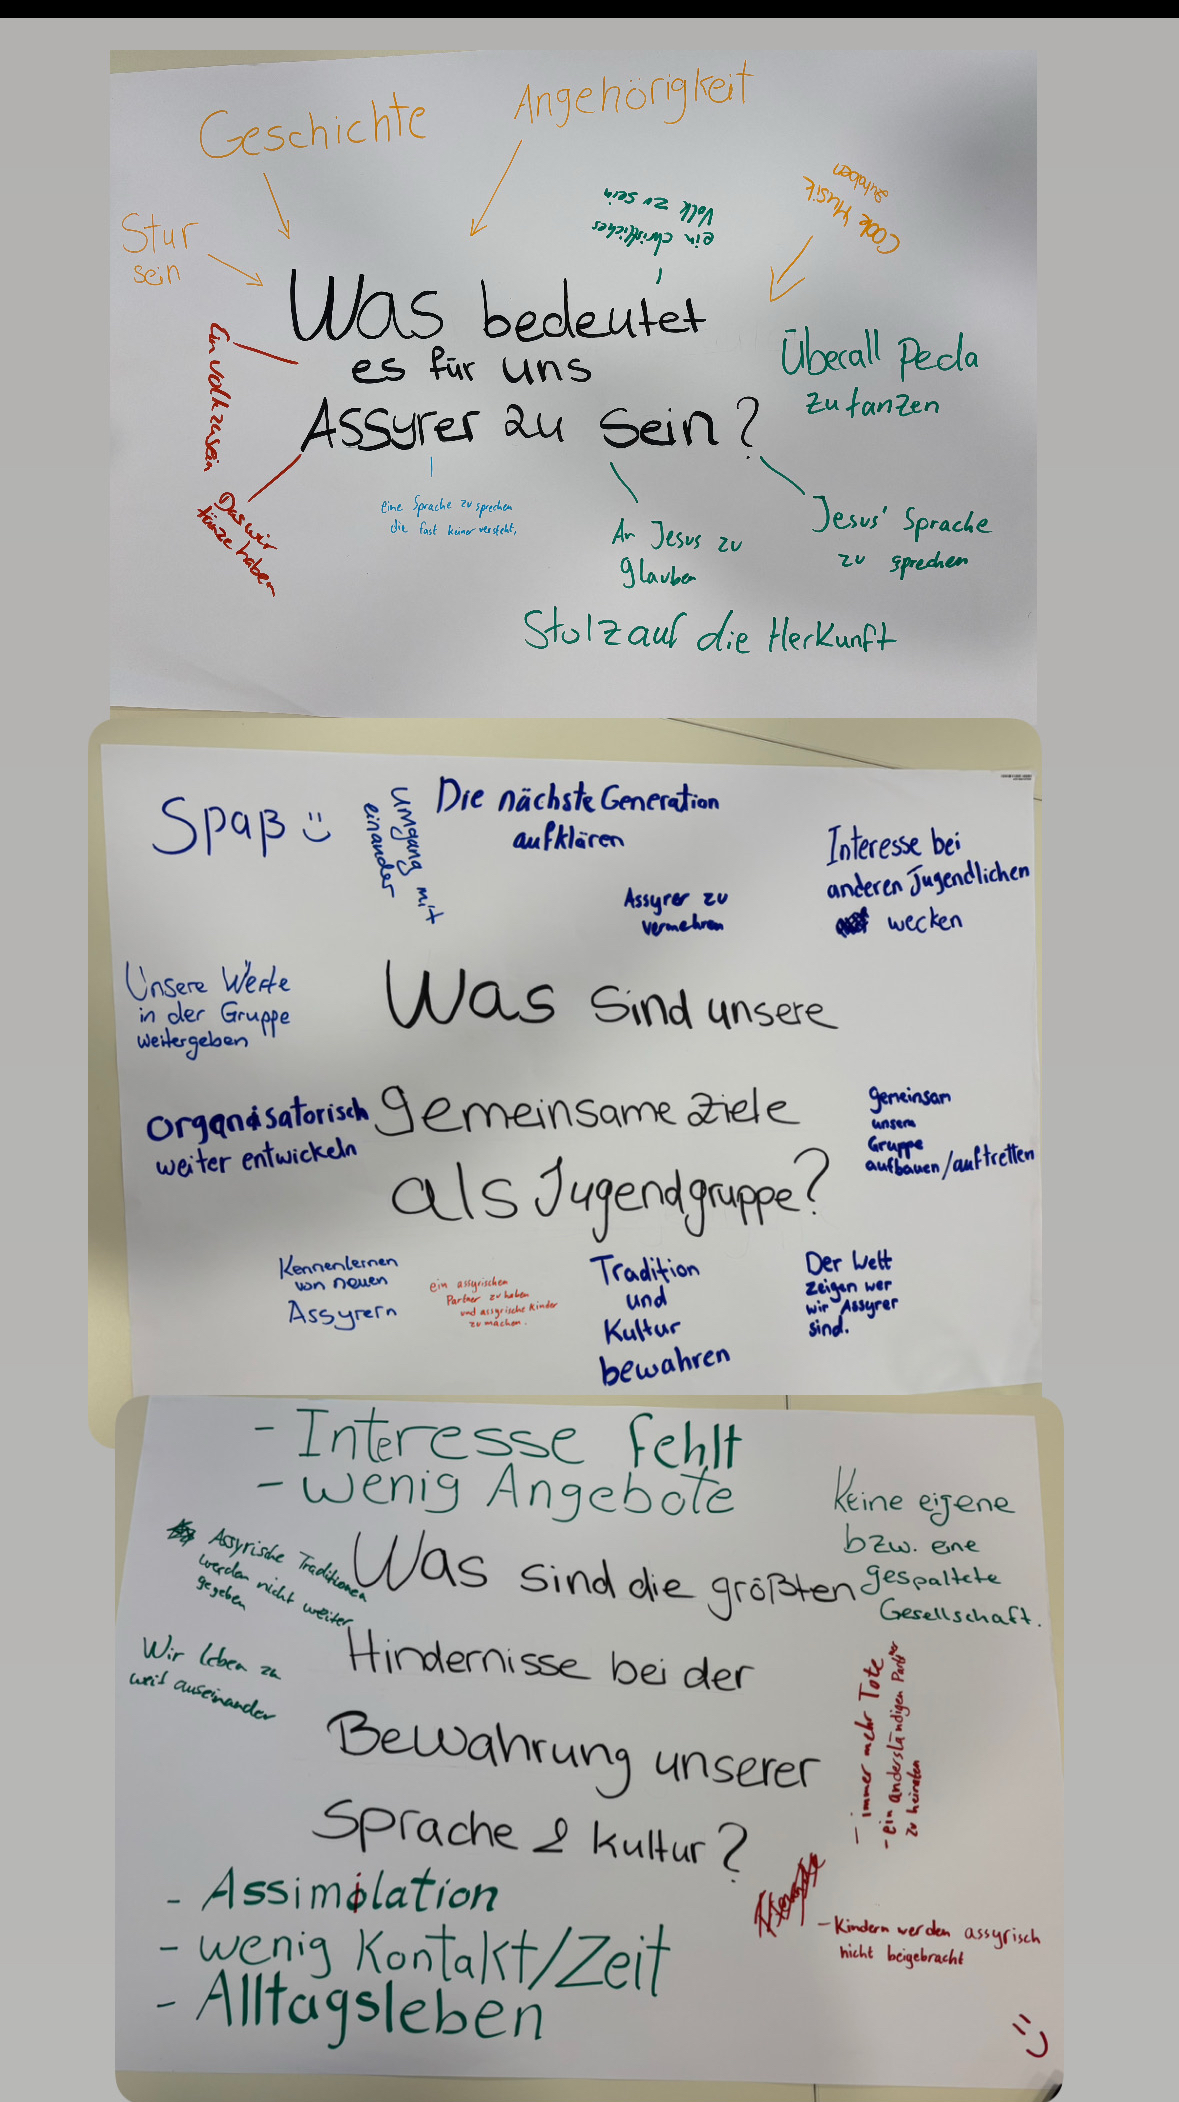 Geschichte
Angehörigkeit
Stur
sein
ein christliches
Volk zu sein
Coole Musik
zuhaben
Was bedeutet
es für uns
Assyrer zu sein?
Überall Peda
zu tanzen
Ein Volk zu sein
Das wir
tänze haben
eine Sprache zu sprechen
die fast keiner versteht,
An Jesus zu
glauben
Jesus' Sprache
zu sprechen
Stolz auf die Herkunft
Spaß :)
Umgang mit
einander
Die nächste Generation
aufklären
Assyrer zu
vermehren
Interesse bei
anderen Jugendlichen
wecken
Unsere Werte
in der Gruppe
weitergeben
Was sind unsere
gemeinsame Ziele
als Jugendgruppe?
organisatorisch
weiter entwickeln
gemeinsam
unsere
Gruppe
aufbauen/auftretten
Kennenlernen
von neuen
Assyrern
ein assyrischen
Partner zu haben
und assyrische Kinder
zu machen.
Tradition
und
Kultur
bewahren
Der Welt
zeigen wer
wir Assyrer
sind.
- Interesse fehlt
- wenig Angebote
Keine eigene
bzw. eine
gespaltete
Gesellschaft.
Assyrische Traditionen
werden nicht weiter
gegeben
Wir leben zu
weit auseinander
Was sind die größten
Hindernisse bei der
Bewahrung unserer
Sprache & Kultur?
- immer mehr Tote
- ein anderständigen Partner
zu heiraten
- Assimilation
- wenig Kontakt/Zeit
- Alltagsleben
- Kindern werden assyrisch
nicht beigebracht
:)